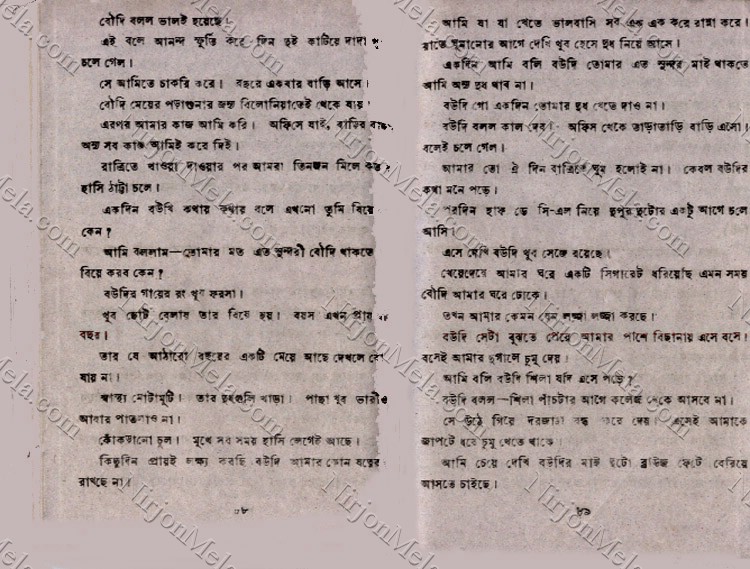 বৌদি বলল ভালই হয়েছে।
এই বলে আনন্দ স্ফূর্তি করে দিন দুই কাটিয়ে দাদা
চলে গেল।
সে আমিতে চাকরি করে। বছরে একবার বাড়ি আসে।
বৌদি মেয়ের পড়াশুনার জন্য বিলোনিয়াতেই থেকে যায়।
এরপর আমার কাজ আমি করি। অফিসে যাই, বাড়ির
অন্য সব কাজ আমিই করে দিই।
রাত্রিতে খাওয়া দাওয়ার পর আমরা তিনজন মিলে কত
হাসি ঠাট্টা চলে।
একদিন বউদি কথায় কথায় বলে এখনো তুমি বিয়ে
কেন?
আমি বললাম—তোমার মত এত সুন্দরী বৌদি থাকতে
বিয়ে করব কেন?
বউদির গায়ের রং খুব ফরসা।
খুব ছোট বেলায় তার বিয়ে হয়। বয়স এখন প্রায়
বছর।
তার যে আঠারো বছরের একটি মেয়ে আছে দেখলে
যায় না।
স্বাস্থ্য মোটামুটি। তার দুধগুলি খাড়া। পাছা খুব ভারীও
আবার পাতলাও না।
কোঁকড়ানো চুল। মুখে সব সময় হাসি লেগেই আছে।
কিছুদিন প্রায়ই লক্ষ্য করছি বউদি আমার কোন যত্নের
রাখছে না।
৮
আমি যা যা খেতে ভালবাসি সব এক এক করে রান্না করে।
রাতে ঘুমানোর আগে দেখি খুব হেসে দুধ নিয়ে আসে।
একদিন আমি বলি বউদি তোমার এত সুন্দর মাই থাকতে
আমি অন্য দুধ খাব না।
বউদি গো একদিন তোমার দুধ খেতে দাও না।
বউদি বলল কাল দেব। অফিস থেকে তাড়াতাড়ি বাড়ি এসো।
বলেই চলে গেল।
আমার তো ঐ দিন রাত্রিতে ঘুম হলোই না। কেবল বউদির
কথা মনে পড়ে।
পরদিন হাফ ডে সি-এল নিয়ে দুপুর দুটোর একটু আগে চলে
আসি।
এসে দেখি বউদি খুব সেজে রয়েছে।
খেয়েদেয়ে আমার ঘরে একটি সিগারেট ধরিয়েছি এমন সময়
বৌদি আমার ঘরে ঢোকে।
তখন আমার কেমন যেন লজ্জা লজ্জা করছে।
বউদি সেটা বুঝতে পেরে আমার পাশে বিছানায় এসে বসে।
বসেই আমার দুগালে চুমু দেয়।
আমি বলি বউদি শিলা যদি এসে পড়ে?
বউদি বলল—শিলা পাঁচটার আগে কলেজ থেকে আসবে না।
সে উঠে গিয়ে দরজাটা বন্ধ করে দেয়। এসেই আমাকে
জাপটে ধরে চুমু খেতে থাকে।
আমি চেয়ে দেখি বউদির মাই দুটো ব্লাউজ ফেটে বেরিয়ে
আসতে চাইছে।
৮৯
NirjonMela.com